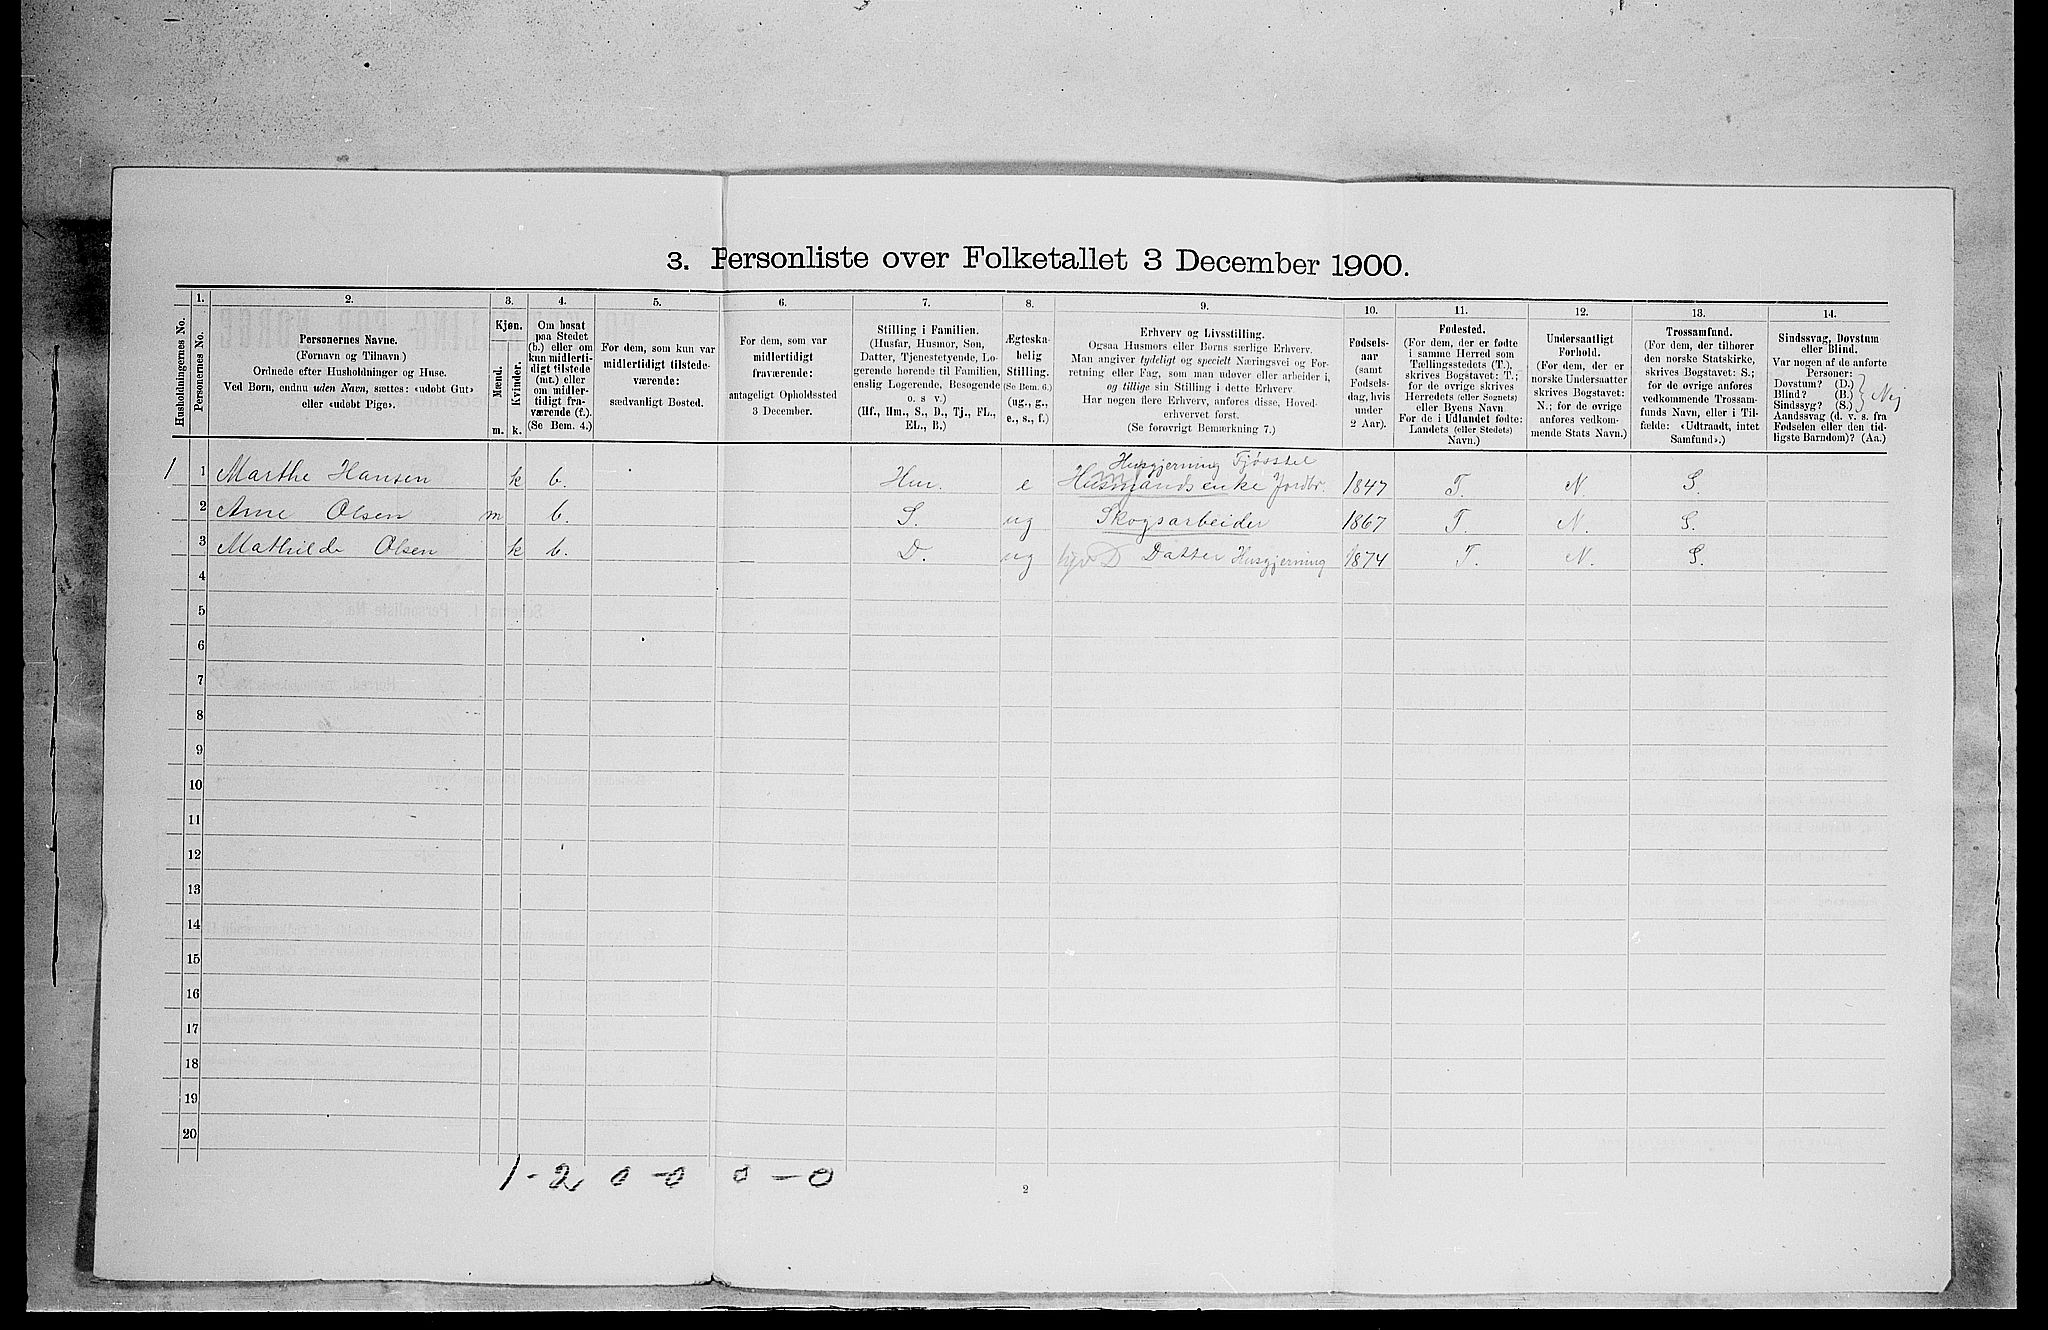 3. Personliste over Folketallet 3 December 1900.
Husholdningernes No.
1.
Personernes No.
2.
Personernes Navne.
(Fornavn og Tilnavn.)
Ordnede efter Husholdninger og Huse.
Ved Børn, endnu uden Navn, sættes: «udøbt Gut»
eller «udøbt Pige».
3.
Kjøn.
Mænd.
Kvinder.
m. k.
4.
Om bosat
paa Stedet
(b.) eller om
kun midlerti-
digt tilstede
(mt.) eller
om midler-
tidigt fra-
værende (f.).
(Se Bem. 4.)
5.
For dem, som kun var
midlertidigt tilstede-
værende:
sædvanligt Bosted.
6.
For dem, som var
midlertidigt
fraværende:
antageligt Opholdssted
3 December.
7.
Stilling i Familien.
(Husfar, Husmor, Søn,
Datter, Tjenestetyende, Lo-
gerende hørende til Familien,
enslig Logerende, Besøgende
o. s v.)
(Hf., Hm., S., D., Tj., FL.,
EL., B.)
8.
Ægteska-
belig
Stilling.
(Se Bem. 6.)
(ug., g.,
e., s., f.)
9.
Erhverv og Livsstilling.
Ogsaa Husmors eller Børns særlige Erhverv.
Man angiver tydeligt og specielt Næringsvei og For-
retning eller Fag, som man udøver eller arbeider i,
og tillige sin Stilling i dette Erhverv
Har nogen flere Erhverv, anføres disse, Hoved-
erhvervet først.
(Se forøvrigt Bemærkning 7.)
10.
Fødsels-
aar
(samt
Fødsels-
dag, hvis
under
2 Aar).
11.
Fødested.
(For dem, der er fødte
i samme Herred som
Tællingsstedets (T.),
skrives Bogstavet: T.;
for de øvrige skrives
Herredets (eller Sognets)
eller Byens Navn
For de i Udlandet fødte:
Landets (eller Stedets)
Navn.)
12.
Undersaatligt
Forhold.
(For dem, der er
norske Undersaatter
skrives Bogstavet:
N.; for de øvrige
anføres vedkom-
mende Stats Navn.)
13.
Trossamfund.
(For dem, der tilhører
den norske Statskirke,
skrives Bogstavet: S.;
for de øvrige anføres
vedkommende Trossam-
funds Navn, eller i Til-
fælde: «Udtraadt, intet
Samfund».)
14.
Sindssvag, Døvstum
eller Blind.
Var nogen af de anførte
Personer:
Døvstum? (D.)
Blind? (B.)
Sindssyg? (S.)
Aandssvag (d. v. s. fra
Fødselen eller den tid-
ligste Barndom)? (Aa.)
Nej
Husgjerning Fjøsstel
1 1 Marthe Hansen k b. Hm. e Husmandsenke Jordbr. 1847 T. N. S.
2 Arne Olsen m b. S. ug Skogsarbeider 1867 T. N. S.
3 Mathilde Olsen k b. D. ug Datter Husgjerning 1874 T. N. S.
4
5
6
7
8
9
10
11
12
13
14
15
16
17
18
19
20
1-2 0-0 0-0
2